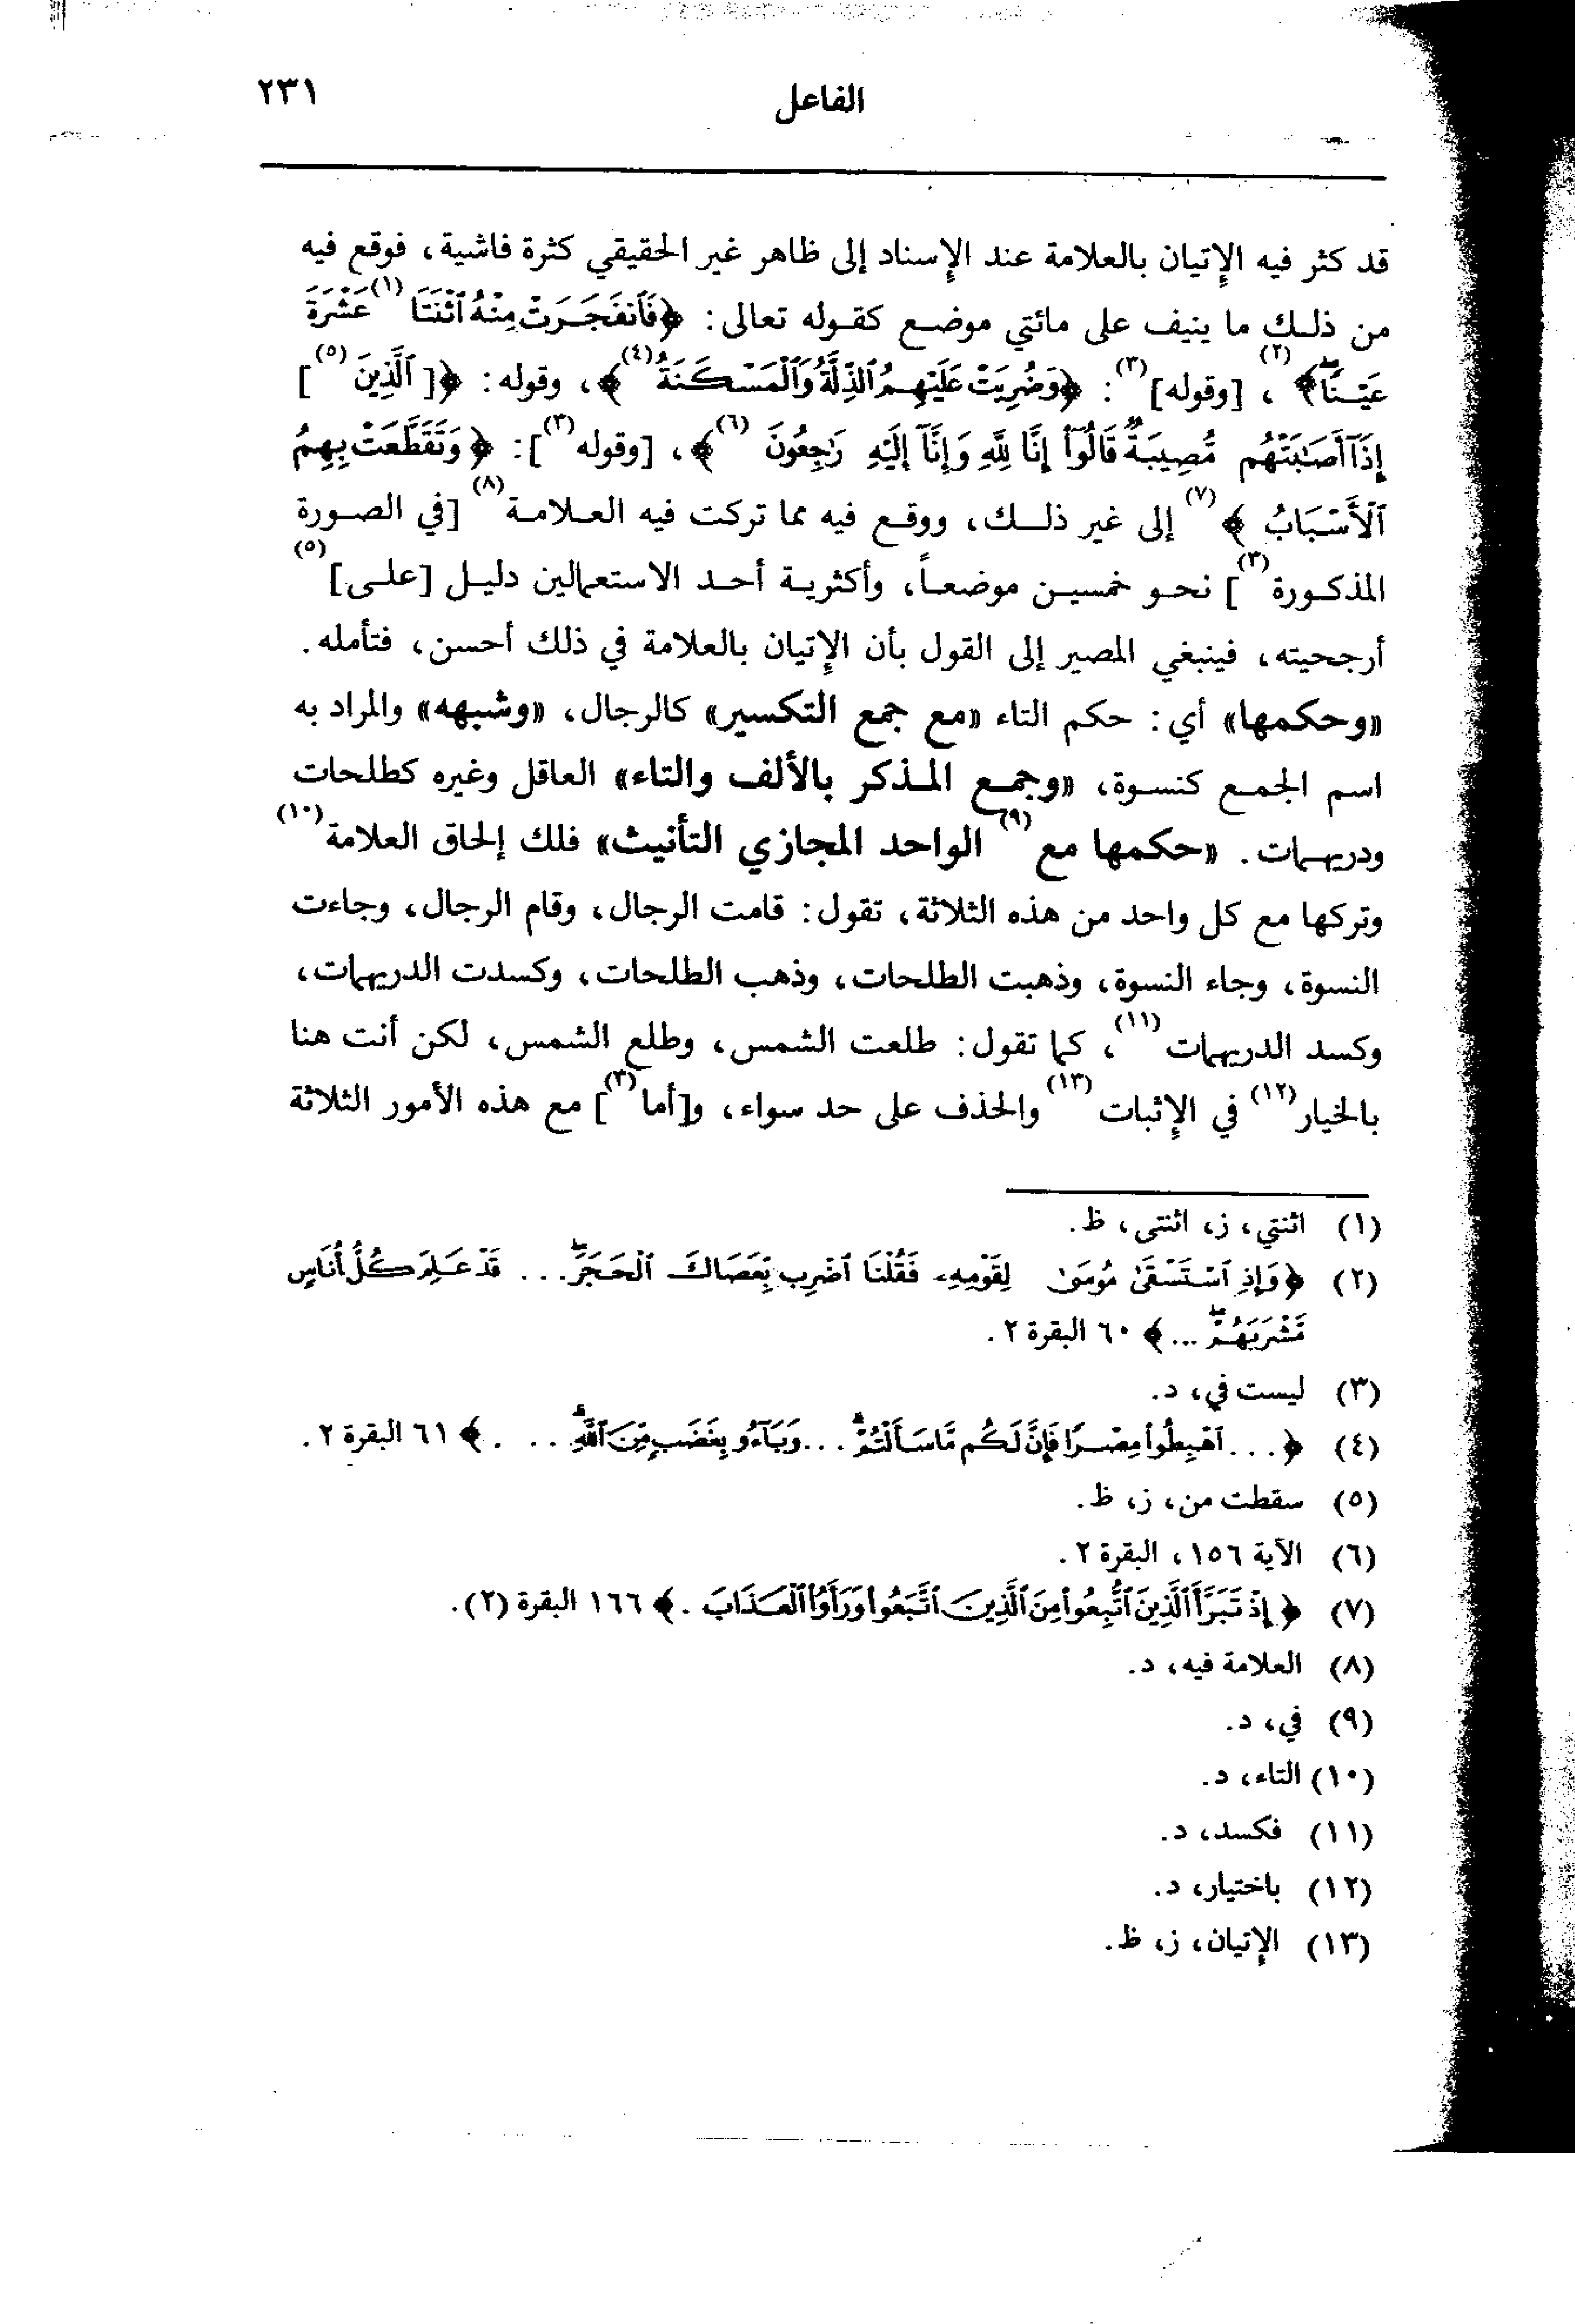 الفاعل ٢٣١
قد كثر فيه الإتيان بالعلامة عند الإسناد إلى ظاهر غير الحقيقي كثرة فاشية، فوقع فيه
من ذلك ما ينيف على مائتي موضع كقوله تعالى: ﴿فَٱنفَجَرَتْ مِنْهُ ٱثْنَتَا(١) عَشْرَةَ
عَيْنًا﴾(٢)، [وقوله](٣): ﴿وَضُرِبَتْ عَلَيْهِمُ ٱلذِّلَّةُ وَٱلْمَسْكَنَةُ(٤)﴾، وقوله: ﴿[ٱلَّذِينَ(٥)]
إِذَآ أَصَٰبَتْهُم مُّصِيبَةٌ قَالُوٓا۟ إِنَّا لِلَّهِ وَإِنَّآ إِلَيْهِ رَٰجِعُونَ(٦)﴾، [وقوله(٣)]: ﴿وَتَقَطَّعَتْ بِهِمُ
ٱلْأَسْبَابُ﴾(٧) إلى غير ذلك، ووقع فيه مما تركت فيه العلامة(٨) [في الصورة
المذكورة(٣)] نحو خمسين موضعاً، وأكثرية أحد الاستعمالين دليل [على](٥)
أرجحيته، فينبغي المصير إلى القول بأن الإتيان بالعلامة في ذلك أحسن، فتأمله.
«وحكمها» أي: حكم التاء «مع جمع التكسير» كالرجال، «وشبهه» والمراد به
اسم الجمع كنسوة، «وجمع المذكر بالألف والتاء» العاقل وغيره كطلحات
ودريهمات. «حكمها مع(٩) الواحد المجازي التأنيث» فلك إلحاق العلامة(١٠)
وتركها مع كل واحد من هذه الثلاثة، تقول: قامت الرجال، وقام الرجال، وجاءت
النسوة، وجاء النسوة، وذهبت الطلحات، وذهب الطلحات، وكسدت الدريهمات،
وكسد الدريهمات(١١)، كما تقول: طلعت الشمس، وطلع الشمس، لكن أنت هنا
بالخيار(١٢) في الإثبات(١٣) والحذف على حد سواء، و[أما(٣)] مع هذه الأمور الثلاثة
(١) اثنتي، ز، اثنتى، ظ.
(٢) ﴿وَإِذِ ٱسْتَسْقَىٰ مُوسَىٰ لِقَوْمِهِۦ فَقُلْنَا ٱضْرِب بِّعَصَاكَ ٱلْحَجَرَۖ... قَدْ عَلِمَ كُلُّ أُنَاسٍ
مَّشْرَبَهُمْۖ ...﴾ ٦٠ البقرة ٢.
(٣) ليست في، د.
(٤) ﴿...ٱهْبِطُوا۟ مِصْرًا فَإِنَّ لَكُم مَّا سَأَلْتُمْۗ ...وَبَآءُو بِغَضَبٍ مِّنَ ٱللَّهِۗ ....﴾ ٦١ البقرة ٢.
(٥) سقطت من، ز، ظ.
(٦) الآية ١٥٦، البقرة ٢.
(٧) ﴿إِذْ تَبَرَّأَ ٱلَّذِينَ ٱتُّبِعُوا۟ مِنَ ٱلَّذِينَ ٱتَّبَعُوا۟ وَرَأَوُا۟ ٱلْعَذَابَ .﴾ ١٦٦ البقرة (٢).
(٨) العلامة فيه، د.
(٩) في، د.
(١٠) التاء، د.
(١١) فكسد، د.
(١٢) باختيار، د.
(١٣) الإتيان، ز، ظ.